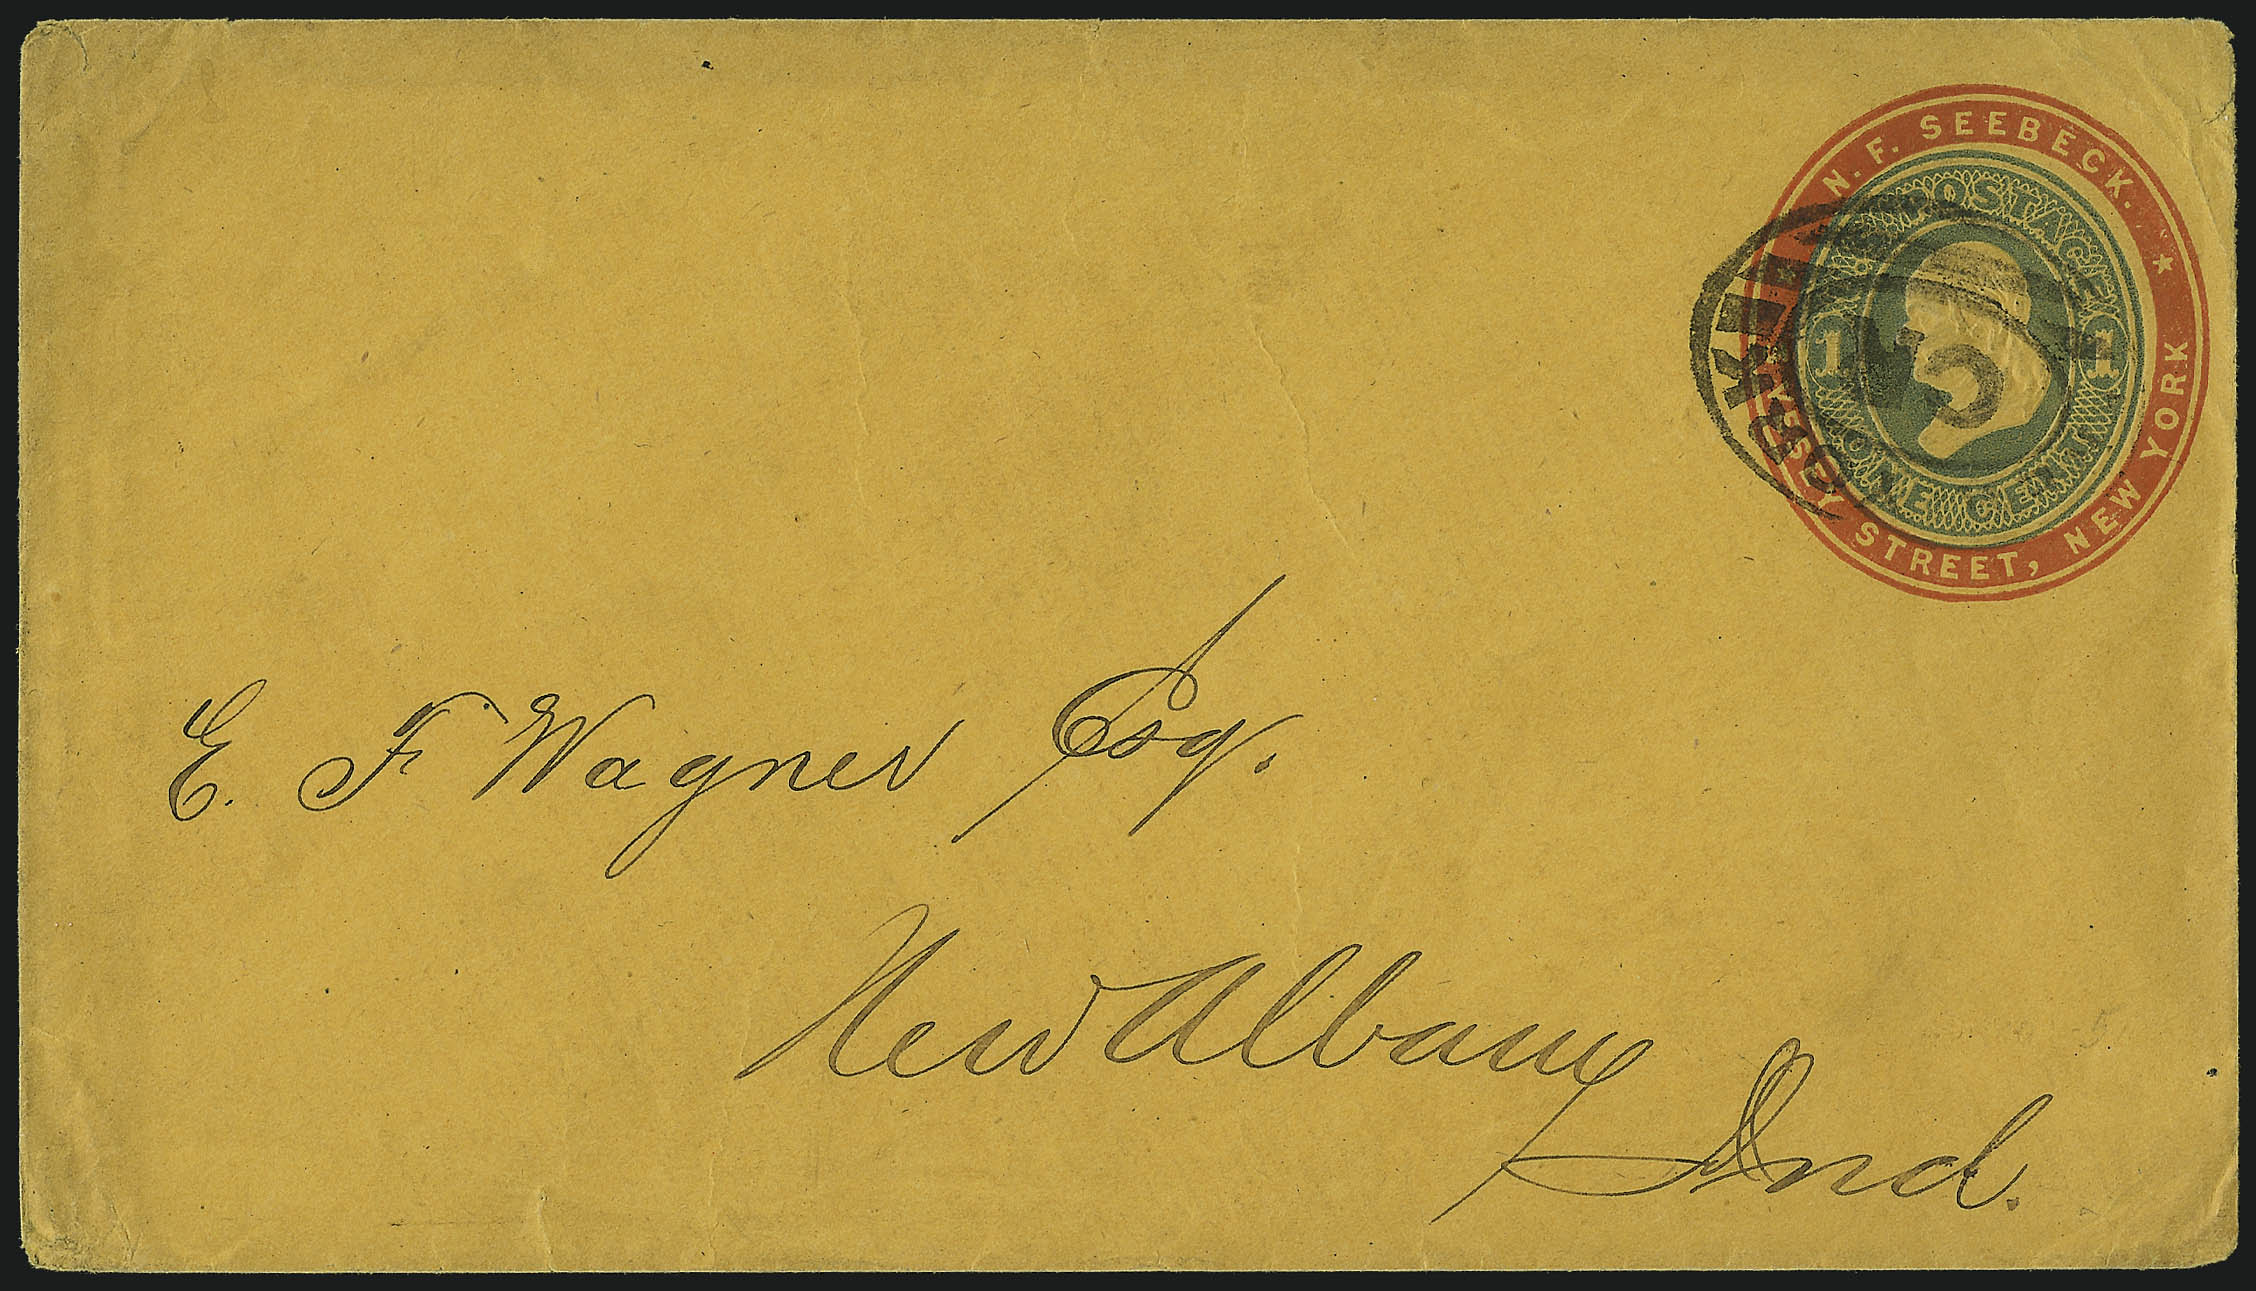 N. F. SEEBECK. *
STREET, NEW YORK
POSTAGE
1 1
ONE CENT
E. F. Wagner Esq.
New Albany
Ind.